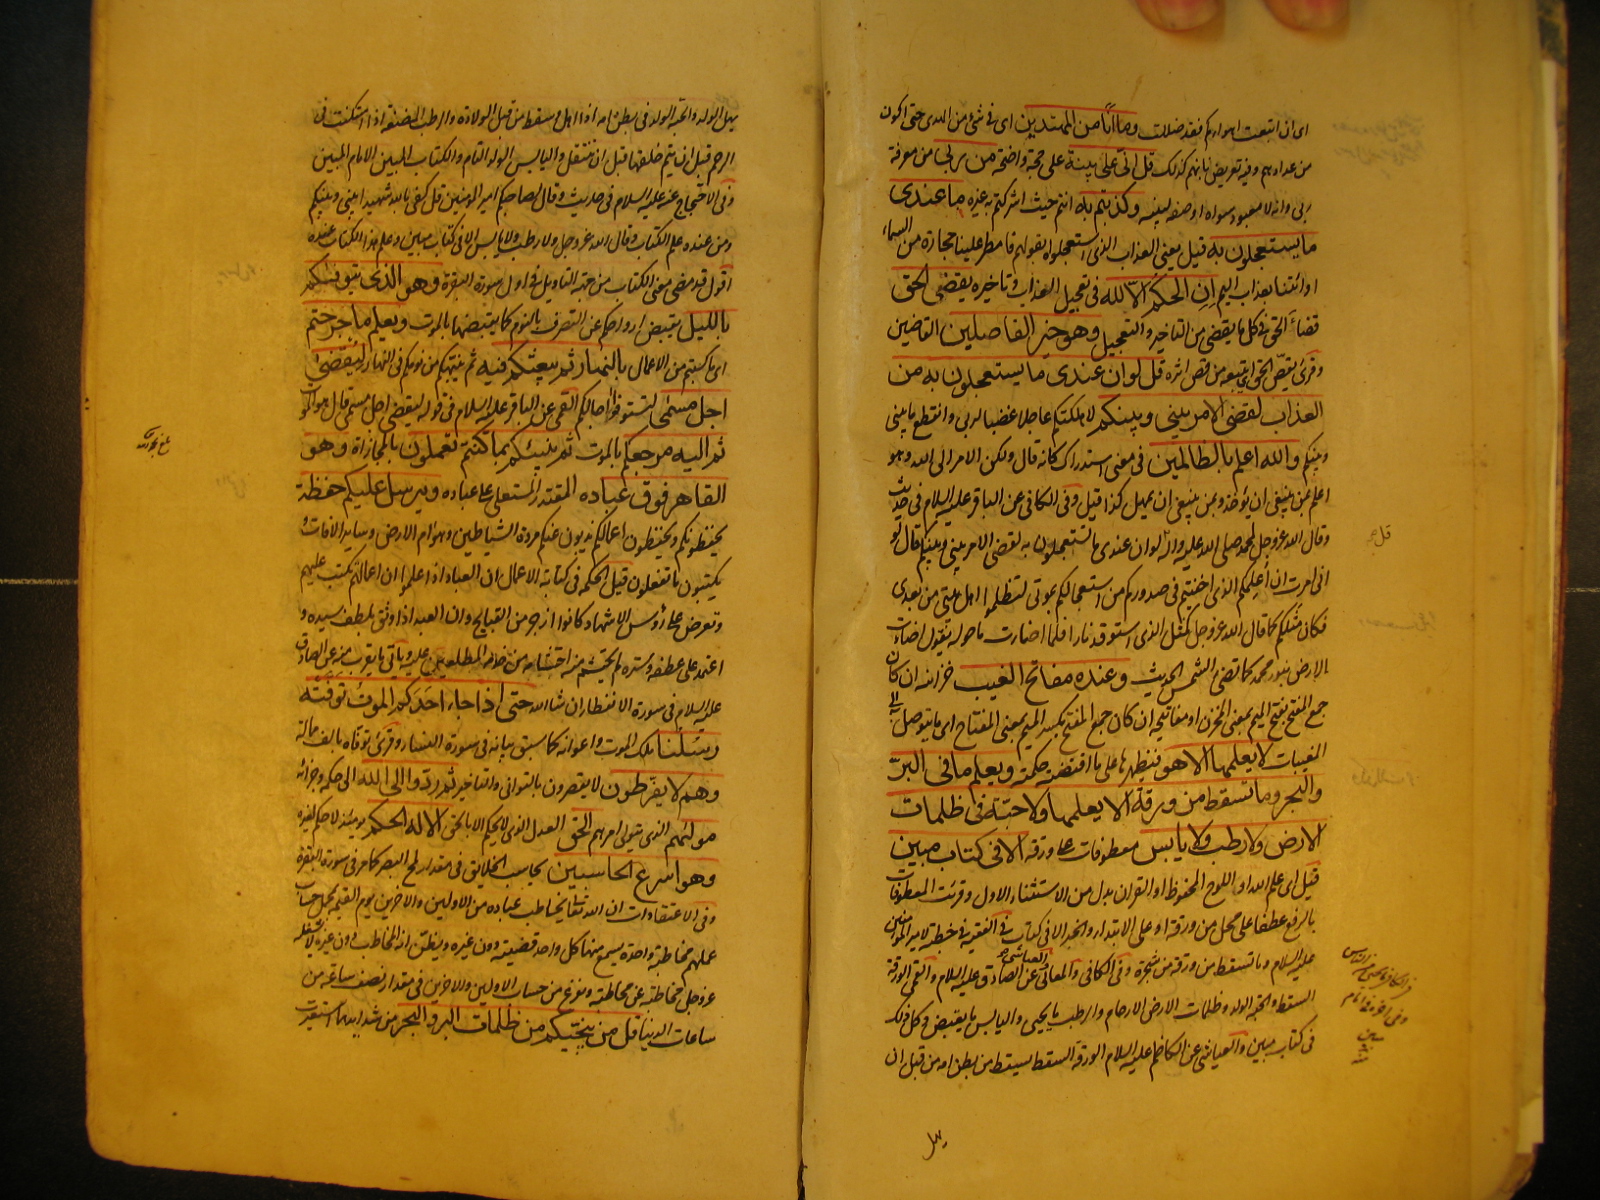 اى ان اتبعت اهواءكم فقد ضللت وما انا من المهتدين اى فى شئ من الهدى حتى اكون
من عدادهم وفيه تعريض بانهم كذلك قل انى على بينة على حجة واضحة من ربى من معرفة
ربى وانه لا معبود سواه او صفة لبينة وكذبتم به انتم حيث اشركتم به غيره ما عندى
ما يستعجلون به قيل يعنى العذاب الذى استعجلوه بقولهم فامطر علينا حجارة من السماء
او ائتنا بعذاب اليم ان الحكم الا لله فى تعجيل العذاب وتاخيره يقضى الحق
قضاء الحق فى كل ما يقضى من التاخير والتعجيل وهو خير الفاصلين القاضين
وقرئ يقص الحق اى يتبعه من قص اثره قل لو ان عندى ما يستعجلون به من
العذاب لقضى الامر بينى وبينكم لاهلكتكم عاجلا غضبا لربى وانقطع ما بينى
وبينكم والله اعلم بالظالمين فى معنى استدراك كانه قال ولكن الامر الى الله وهو
اعلم بمن ينبغى ان يؤخذ وبمن ينبغى ان يمهل كذا قيل وفى الكافى عن الباقر عليه السلام فى حديث
وقال الله عز وجل لمحمد صلى الله عليه واله لو ان عندى ما تستعجلون به لقضى الامر بينى وبينكم قال لو
انى امرت ان اعلمكم الذى اخفيتم فى صدوركم من استعجالكم بموتى لتظلموا اهل بيتى من بعدى
فكان مثلكم كما قال الله عز وجل كمثل الذى استوقد نارا فلما اضاءت ما حوله يقول اضاءت
الارض بنور محمد كما تضئ الشمس الحديث وعنده مفاتح الغيب خزائنه ان كان
جمع المفتح بفتح الميم بمعنى المخزن او مفاتيحه ان كان جمع المفتح بكسر الميم بمعنى المفتاح اى ما يتوصل به الى
المغيبات لا يعلمها الا هو فيظهرها على ما اقتضته حكمته ويعلم ما فى البر
والبحر وما تسقط من ورقة الا يعلمها ولا حبة فى ظلمات
الارض ولا رطب ولا يابس معطوفات على ورقة الا فى كتاب مبين
قيل اى علم الله او اللوح المحفوظ او القران بدل من الاستثناء الاول وقرئت المعطوفات
بالرفع عطفا على محل من ورقة او على الابتداء والخبر الا فى كتاب فى الفقيه فى خطبة لامير المؤمنين
عليه السلام وما تسقط من ورقة من شجرة وفى الكافى والمعانى والعياشى عن الصادق عليه السلام والقمى الورقة
السقط والحبة الولد وظلمات الارض الارحام والرطب ما يحيى واليابس ما يقبض وكل ذلك
فى كتاب مبين والعياشى عن الكاظم عليه السلام الورقة السقط يسقط من بطن امه من قبل ان
يهل
يهل الولد والحبة الولد فى بطن امه اذا اهل ويسقط من قبل الولادة والرطب المضغة اذا استكنت فى
الرحم قبل ان يتم خلقها قبل ان تنتقل واليابس الولد التام والكتاب المبين الامام المبين
وفى الاحتجاج عنه عليه السلام فى حديث وقال لصاحبكم امير المؤمنين قل كفى بالله شهيدا بينى وبينكم
ومن عنده علم الكتاب وقال الله عز وجل ولا رطب ولا يابس الا فى كتاب مبين وعلم هذا الكتاب عنده
اقول قد مضى معنى الكتاب من جهة التاويل فى اول سورة البقرة وهو الذى يتوفيكم
بالليل يقبض ارواحكم عن التصرف بالنوم كما يقبضها بالموت ويعلم ما جرحتم
اى ما كسبتم من الاعمال بالنهار ثم يبعثكم فيه ثم ينبهكم من نومكم فى النهار ليقضى
اجل مسمى لتستوفوا اجالكم القمى عن الباقر عليه السلام فى قوله ليقضى اجل مسمى قال هو الموت
ثم اليه مرجعكم بالموت ثم ينبئكم بما كنتم تعملون بالمجازاة وهو
القاهر فوق عباده المقتدر المستعلى على عباده ويرسل عليكم حفظة
يحفظونكم ويحفظون اعمالكم يذبون عنكم مردة الشياطين وهوام الارض وساير الافات و
يكتبون ما تفعلون قيل الحكمة فى كتابة الاعمال ان العباد اذا علموا ان اعمالهم تكتب عليهم
وتعرض على رؤس الاشهاد كانوا ازجر من القبايح وان العبد اذا وثق بلطف سيده و
اعتمد على عطفه وستره لم يحتشم منه احتشامه من خدمه المطلعين عليه وياتى ما يقرب منه عن الصادق
عليه السلام فى سورة الانفطار ان شاء الله حتى اذا جاء احدكم الموت توفته
رسلنا ملك الموت واعوانه كما سبق بيانه فى سورة النساء وقرئ توفاه بالف ممالة
وهم لا يفرطون لا يقصرون بالتوانى والتاخير ثم ردوا الى الله الى حكمه وجزائه
موليهم الذى يتولى امرهم الحق العدل الذى لا يحكم الا بالحق الا له الحكم يومئذ لا حكم لغيره
وهو اسرع الحاسبين يحاسب الخلايق فى مقدار لمح البصر كما مر فى سورة البقرة
وفى الاعتقادات ان الله تعالى يخاطب عباده من الاولين والاخرين يوم القيمة بمجمل حساب
عملهم مخاطبة واحدة يسمع منها كل واحد قضيته دون غيره ويظن انه المخاطب دون غيره لا يشغله
عز وجل مخاطبة عن مخاطبة ويفرغ من حساب الاولين والاخرين فى مقدار نصف ساعة من
ساعات الدنيا قل من ينجيكم من ظلمات البر والبحر من شدايدهما استعيرت